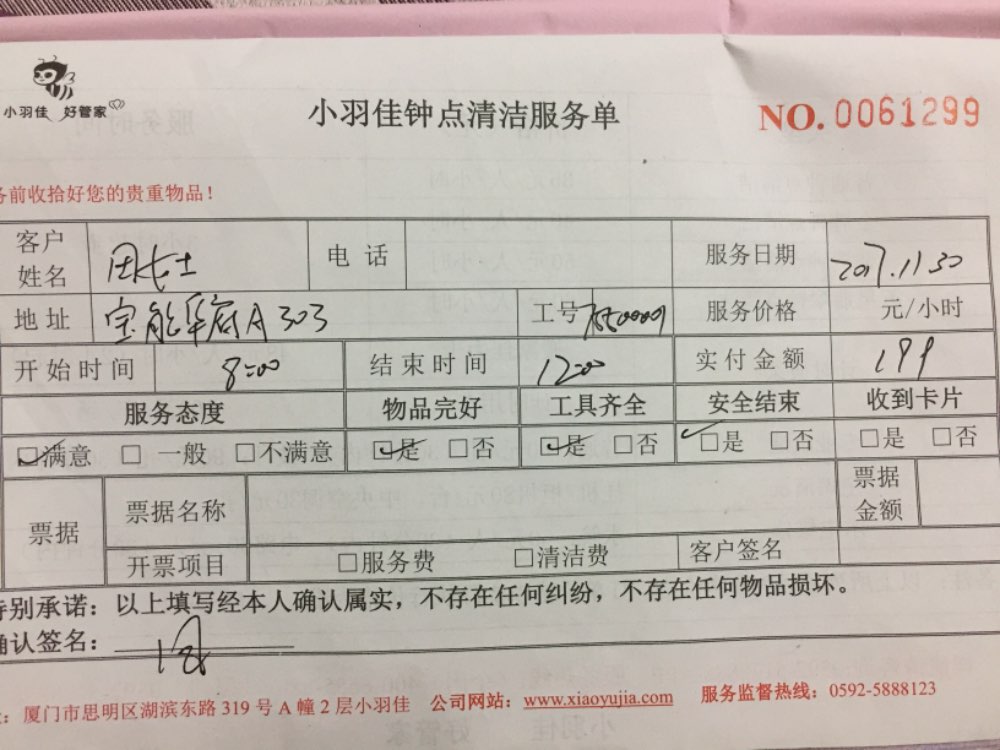 小羽佳 好管家
小羽佳钟点清洁服务单
NO. 0061299
务前收拾好您的贵重物品！
客户姓名 田女士 电话 服务日期 2017.11 30
地址 宝能华府A 303 工号 服务价格 元/小时
开始时间 8:00 结束时间 12:00 实付金额 199
服务态度 物品完好 工具齐全 安全结束 收到卡片
☑满意 □一般 □不满意 ☑是 □否 ☑是 □否 ☑是 □否 □是 □否
票据 票据名称 票据金额
开票项目 □服务费 □清洁费 客户签名
特别承诺：以上填写经本人确认属实，不存在任何纠纷，不存在任何物品损坏。
确认签名：
：厦门市思明区湖滨东路 319 号 A 幢 2 层小羽佳 公司网站：www.xiaoyujia.com 服务监督热线：0592-5888123